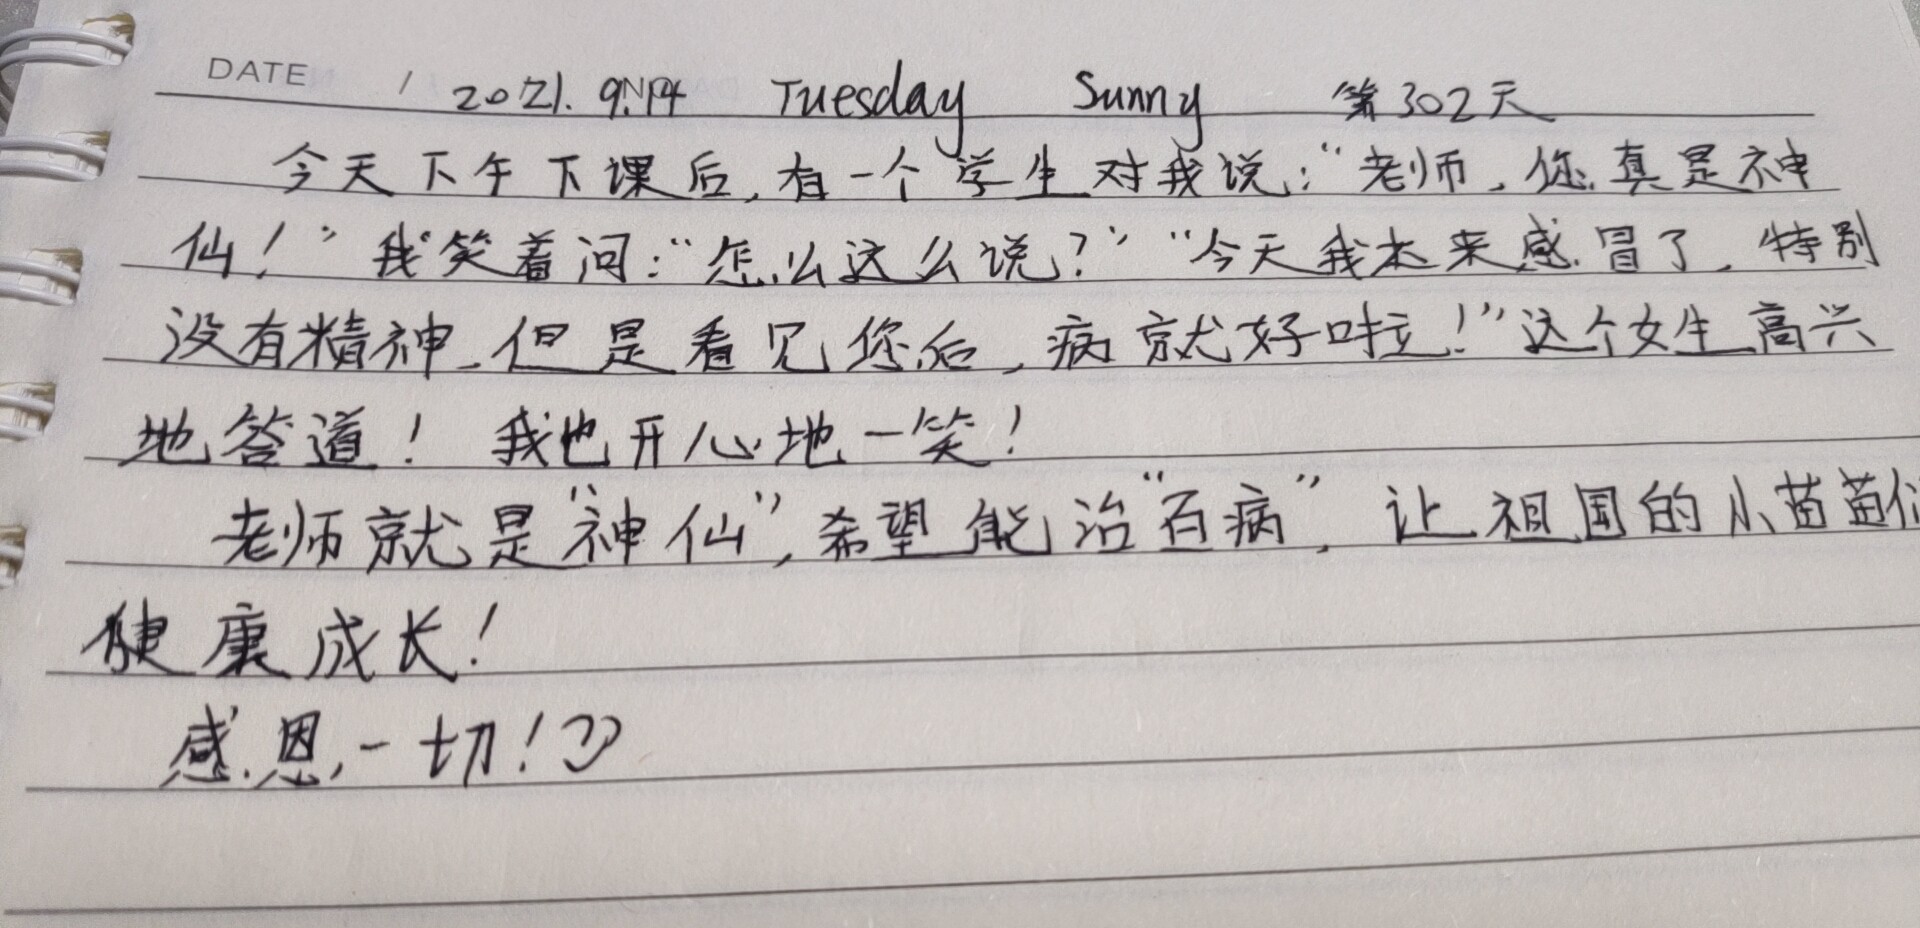 DATE / 2021. 9.14 Tuesday Sunny 第302天
今天下午下课后,有一个学生对我说:“老师,你真是神
仙!”我笑着问:“怎么这么说?”“今天我本来感冒了,特别
没有精神,但是看见您后,病就好啦!”这个女生高兴
地答道!我也开心地一笑!
老师就是“神仙”,希望能治“百病”,让祖国的小苗苗们
健康成长!
感恩一切!